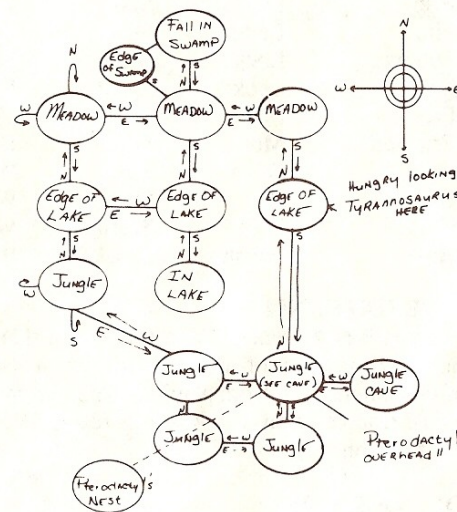 Fall in
Swamp
Edge
of Swamp
S
N
S
N
W
E
S
N
W
Meadow
W
E
Meadow
W
E
Meadow
S
N
S
N
S
N
Edge of
Lake
W
E
Edge of
Lake
Edge of
Lake
Hungry looking
Tyrannosaurus
Here
S
N
S
N
S
Jungle
In
Lake
W
S
W
E
N
Jungle
W
E
Jungle
(see cave)
W
E
Jungle
Cave
N
Jungle
W
E
Jungle
Pterodactyl
overhead!!
Pterodactyl's
Nest